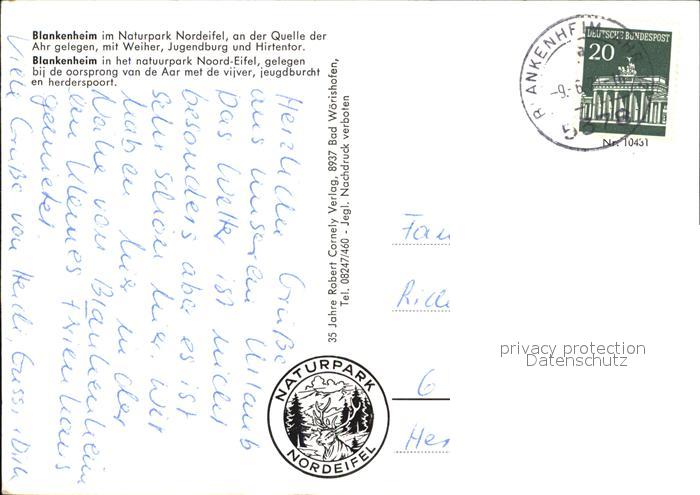 Blankenheim im Naturpark Nordeifel, an der Quelle der
Ahr gelegen, mit Weiher, Jugendburg und Hirtentor.
Blankenheim in het natuurpark Noord-Eifel, gelegen
bij de oorsprong van de Aar met de vijver, jeugdburcht
en herderspoort.
Herzliche Grüße
aus unserem Urlaub
Das Wetter ist nicht
besonders aber es ist
sehr schön hier. Wir
haben hier in der
Nähe von Blankenheim
ein kleines Ferienhaus
gemietet.
Viele Grüße von Heidi, Dirk
35 Jahre Robert Cornely Verlag, 8937 Bad Wörishofen,
Tel. 08247/460 - Jegl. Nachdruck verboten
NATURPARK
NORDEIFEL
BLANKENHEIM
-9.-6
5378
DEUTSCHE BUNDESPOST
20
Nr. 10431
Fam
privacy protection
Datenschutz